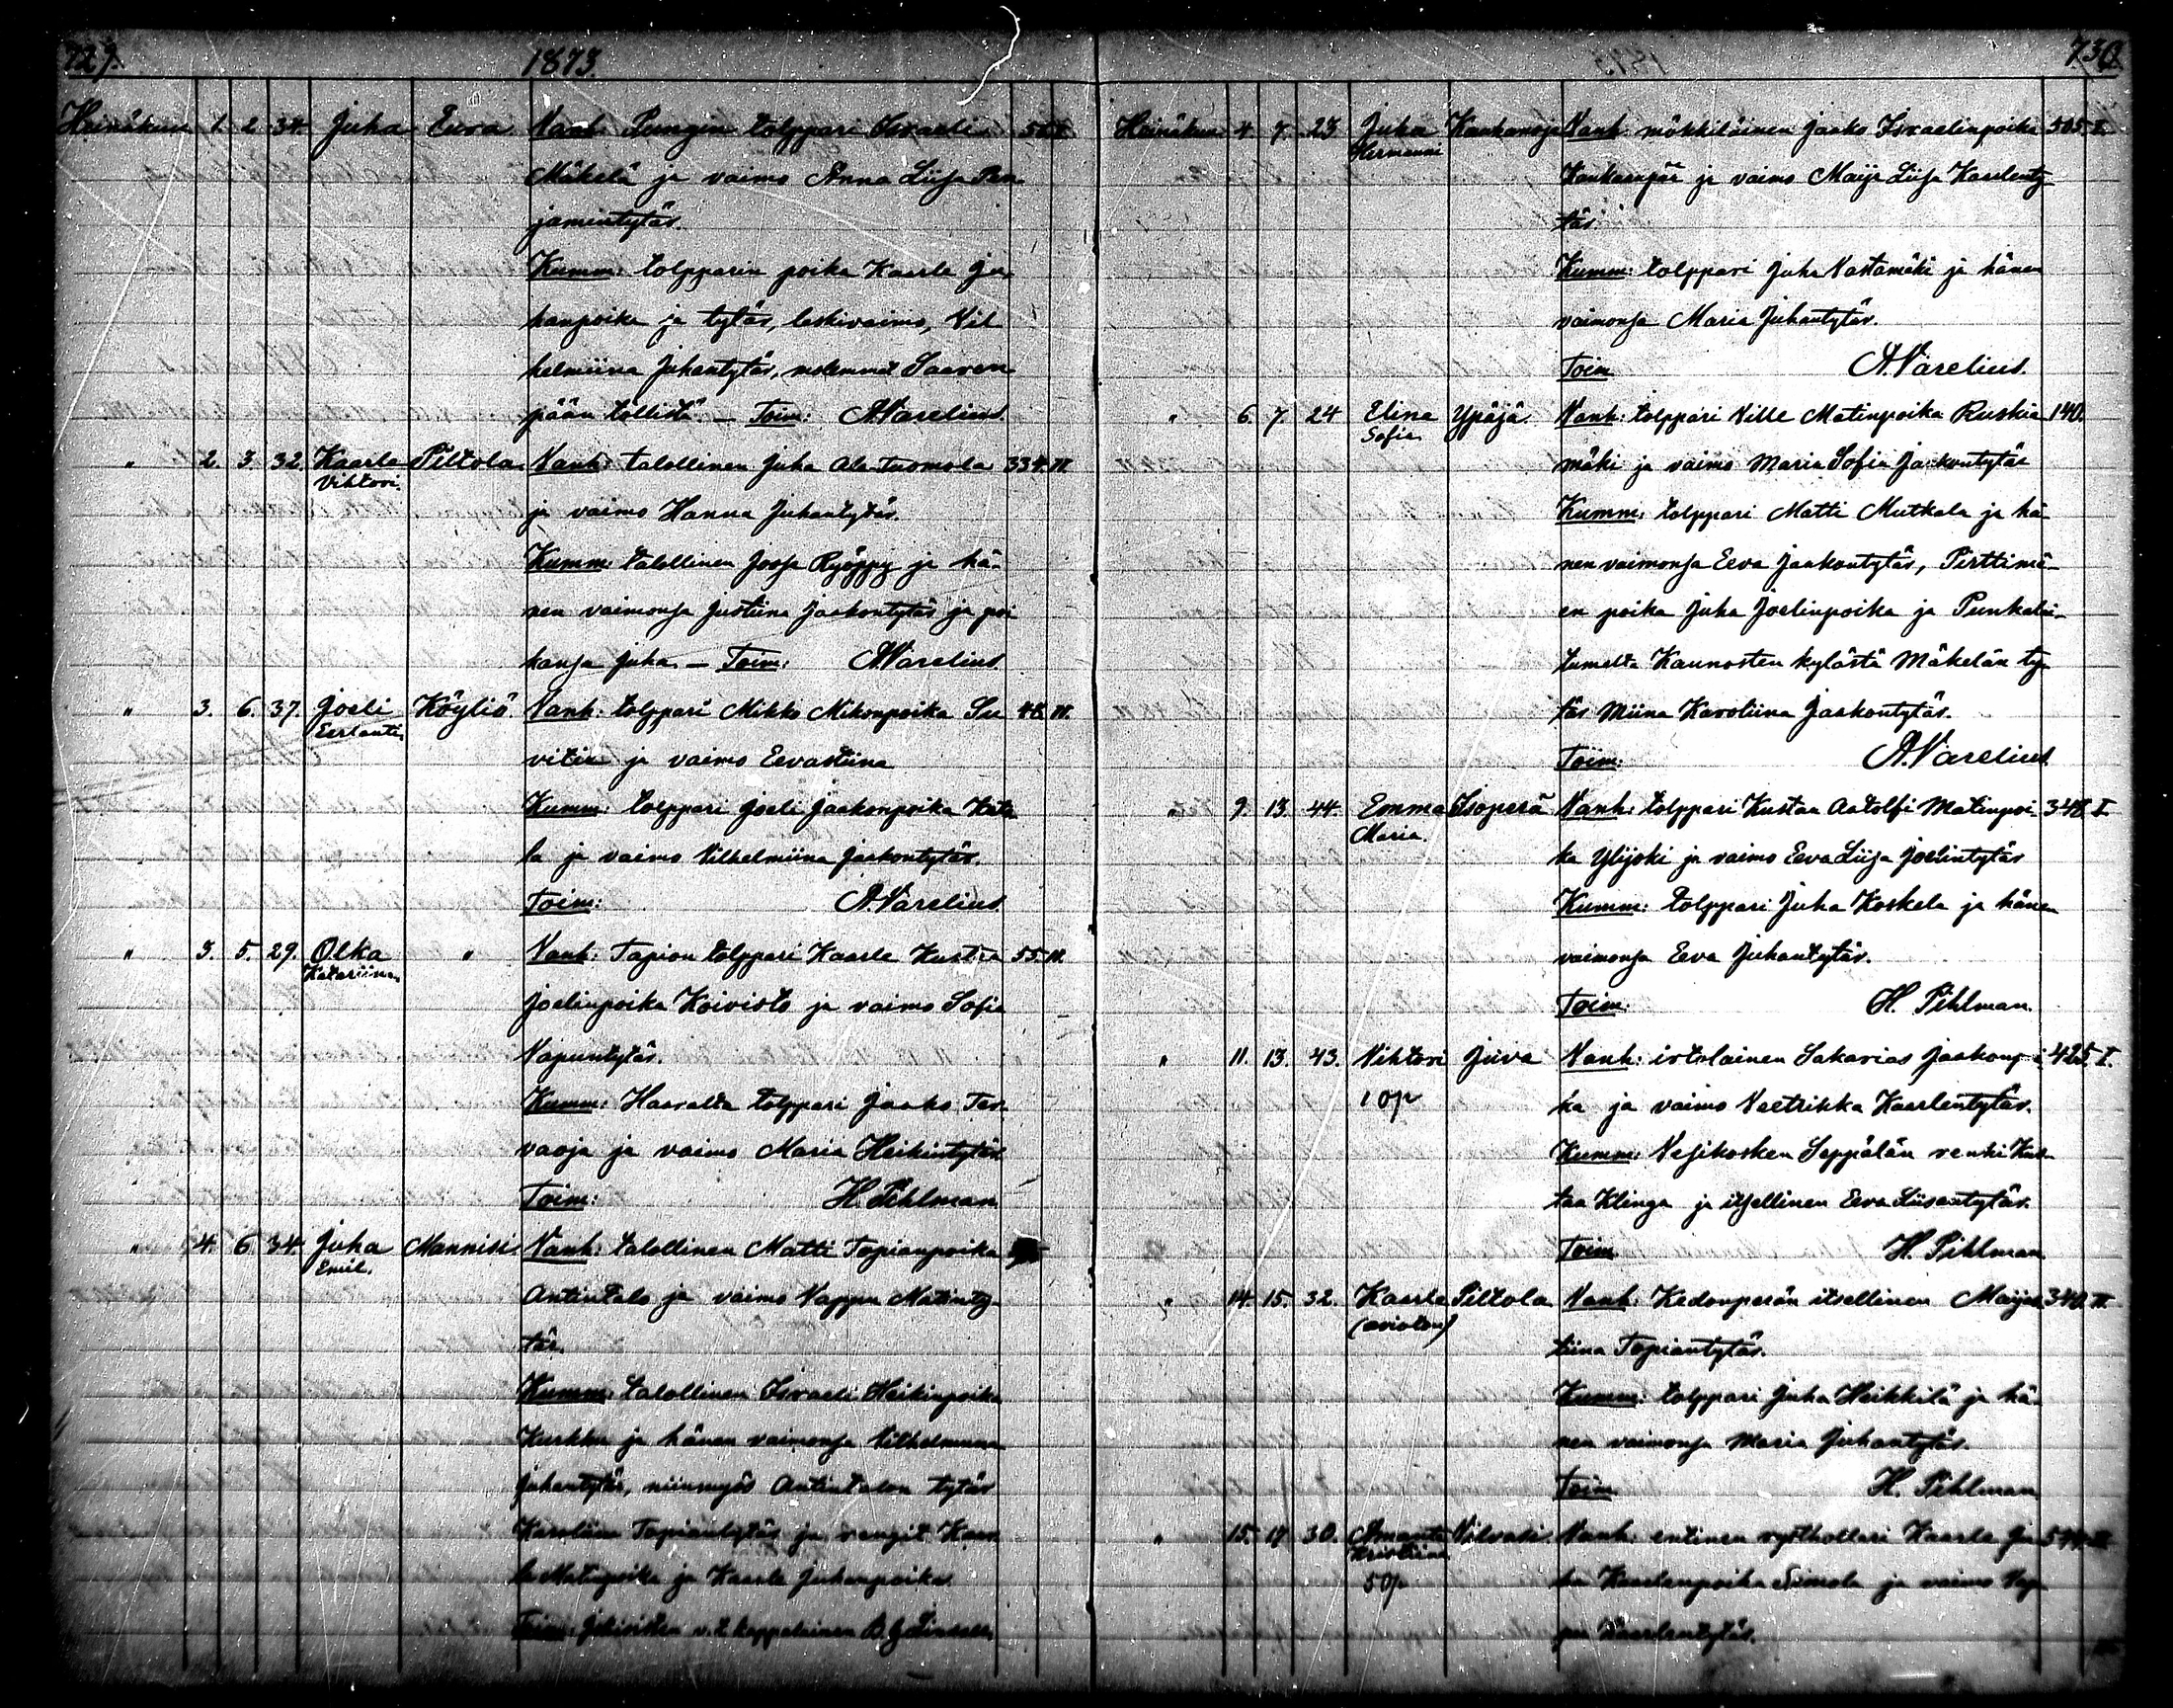 729. 1873.
Heinäkuu 1. 2. 34. Juha Euva Vanh: Pungin tolppari Israeli 56. I.
Mäkelä ja vaimo Anna Liisa Pen
jamintytär.
Kumm: tolpparin poika Kaarle Ju-
hanpoika ja tytär, leskivaimo, Vil
helmiina Juhantytär, molemmat Saaren
pään tollista. — Toim: A. Varelius.
" 2. 3. 32. Kaarle Piltola Vanh: talollinen Juha Ala-Tuomola 334. II.
Vihtori.
ja vaimo Hanna Juhantytär.
Kumm: talollinen Joosa Ryöppy ja hä-
nen vaimonsa Justiina Jaakontytär ja poi
kansa Juha. — Toim: A. Varelius
" 3. 6. 37. Joeli Köyliö. Vanh: tolppari Mikko Mikonpoika Su 48. II.
Eerlanti.
vitie ja vaimo Eevastiina
Kumm: tolppari Joeli Jaakonpoika
la ja vaimo Vilhelmiina Jaakontytär.
Toim: A. Varelius
" 3. 5. 29. Olka " Vanh: Tapion tolppari Kaarle Kustaa 55. II.
Katariina
Joelinpoika Koivisto ja vaimo Sofia
Vapuntytär.
Kumm: Haaralta tolppari Jaako Ter
vaoja ja vaimo Maria Heikintytär
Toim: H. Pihlman
" 4. 6. 34. Juha Mannisi Vanh: talollinen Matti Topianpoika
Emil.
Antintalo ja vaimo Vappu Matinty-
tär.
Kumm: talollinen Israeli Heikinpoika
Kurkku ja hänen vaimonsa Vilhelmiina
Juhantytär, niinmyös Antintalon tytär
Karoliina Topiantytär ja rengit Kaar
le Matinpoika ja Kaarle Juhanpoika.
Toim: Jokisisten v.t. kappalainen
730.
Heinäkuu 4. 7. 23 Juha Kankanoja Vanh: mökkiläinen Jaako Israelinpoika 505. I.
Hermanni
Kankaanpää ja vaimo Maija Liisa Kaarlenty
tär.
Kumm: tolppari Juha Vastamäki ja hänen
vaimonsa Maria Juhantytär.
Toim A. Varelius.
" 6. 7. 24 Elina Ypäjä. Vanh: tolppari Ville Matinpoika Ruskia 140.
Sofia.
mäki ja vaimo Maria Sofia Jaakontytär
Kumm: tolppari Matti Mutkala ja hä
nen vaimonsa Eeva Jaakontytär, Pirttimä-
en poika Juha Joelinpoika ja Punkalai-
tumelta Kaunosten kylästä Mäkelän ty-
tär Miina Karoliina Jaakontytär.
Toim: A. Varelius
" 9. 13. 44. Emma Isoperä Vanh: tolppari Kustaa Aatolfi Matinpoi- 348. I.
Maria.
ka Ylijoki ja vaimo Eeva Liisa Joelintytär
Kumm: tolppari Juha Koskela ja hänen
vaimonsa Eeva Juhantytär.
Toim: H. Pihlman.
" 11. 13. 43. Vihtori Juva Vanh: irtolainen Sakarias Jaakonpoi 425. I.
10p
ka ja vaimo Veetrikka Kaarlentytär.
Kumm: Vesikosken Seppälän renki Kus
taa Klinga ja itsellinen Eeva Liisantytär.
Toim H. Pihlman
" 14. 15. 32. Kaarle Piltola Vanh: Kedonperän itsellinen Maijas 340. II.
(avioton)
tiina Topiantytär.
Kumm: tolppari Juha Heikkilä ja hä-
nen vaimonsa Maria Juhantytär.
Toim H. Pihlman
" 15. 17. 30. Amanta Vilvala Vanh: entinen rysthollari Kaarle Ju
Kristiina
50p
ha Kaarlenpoika Simola ja vaimo Vap
pu Kaarlentytär.